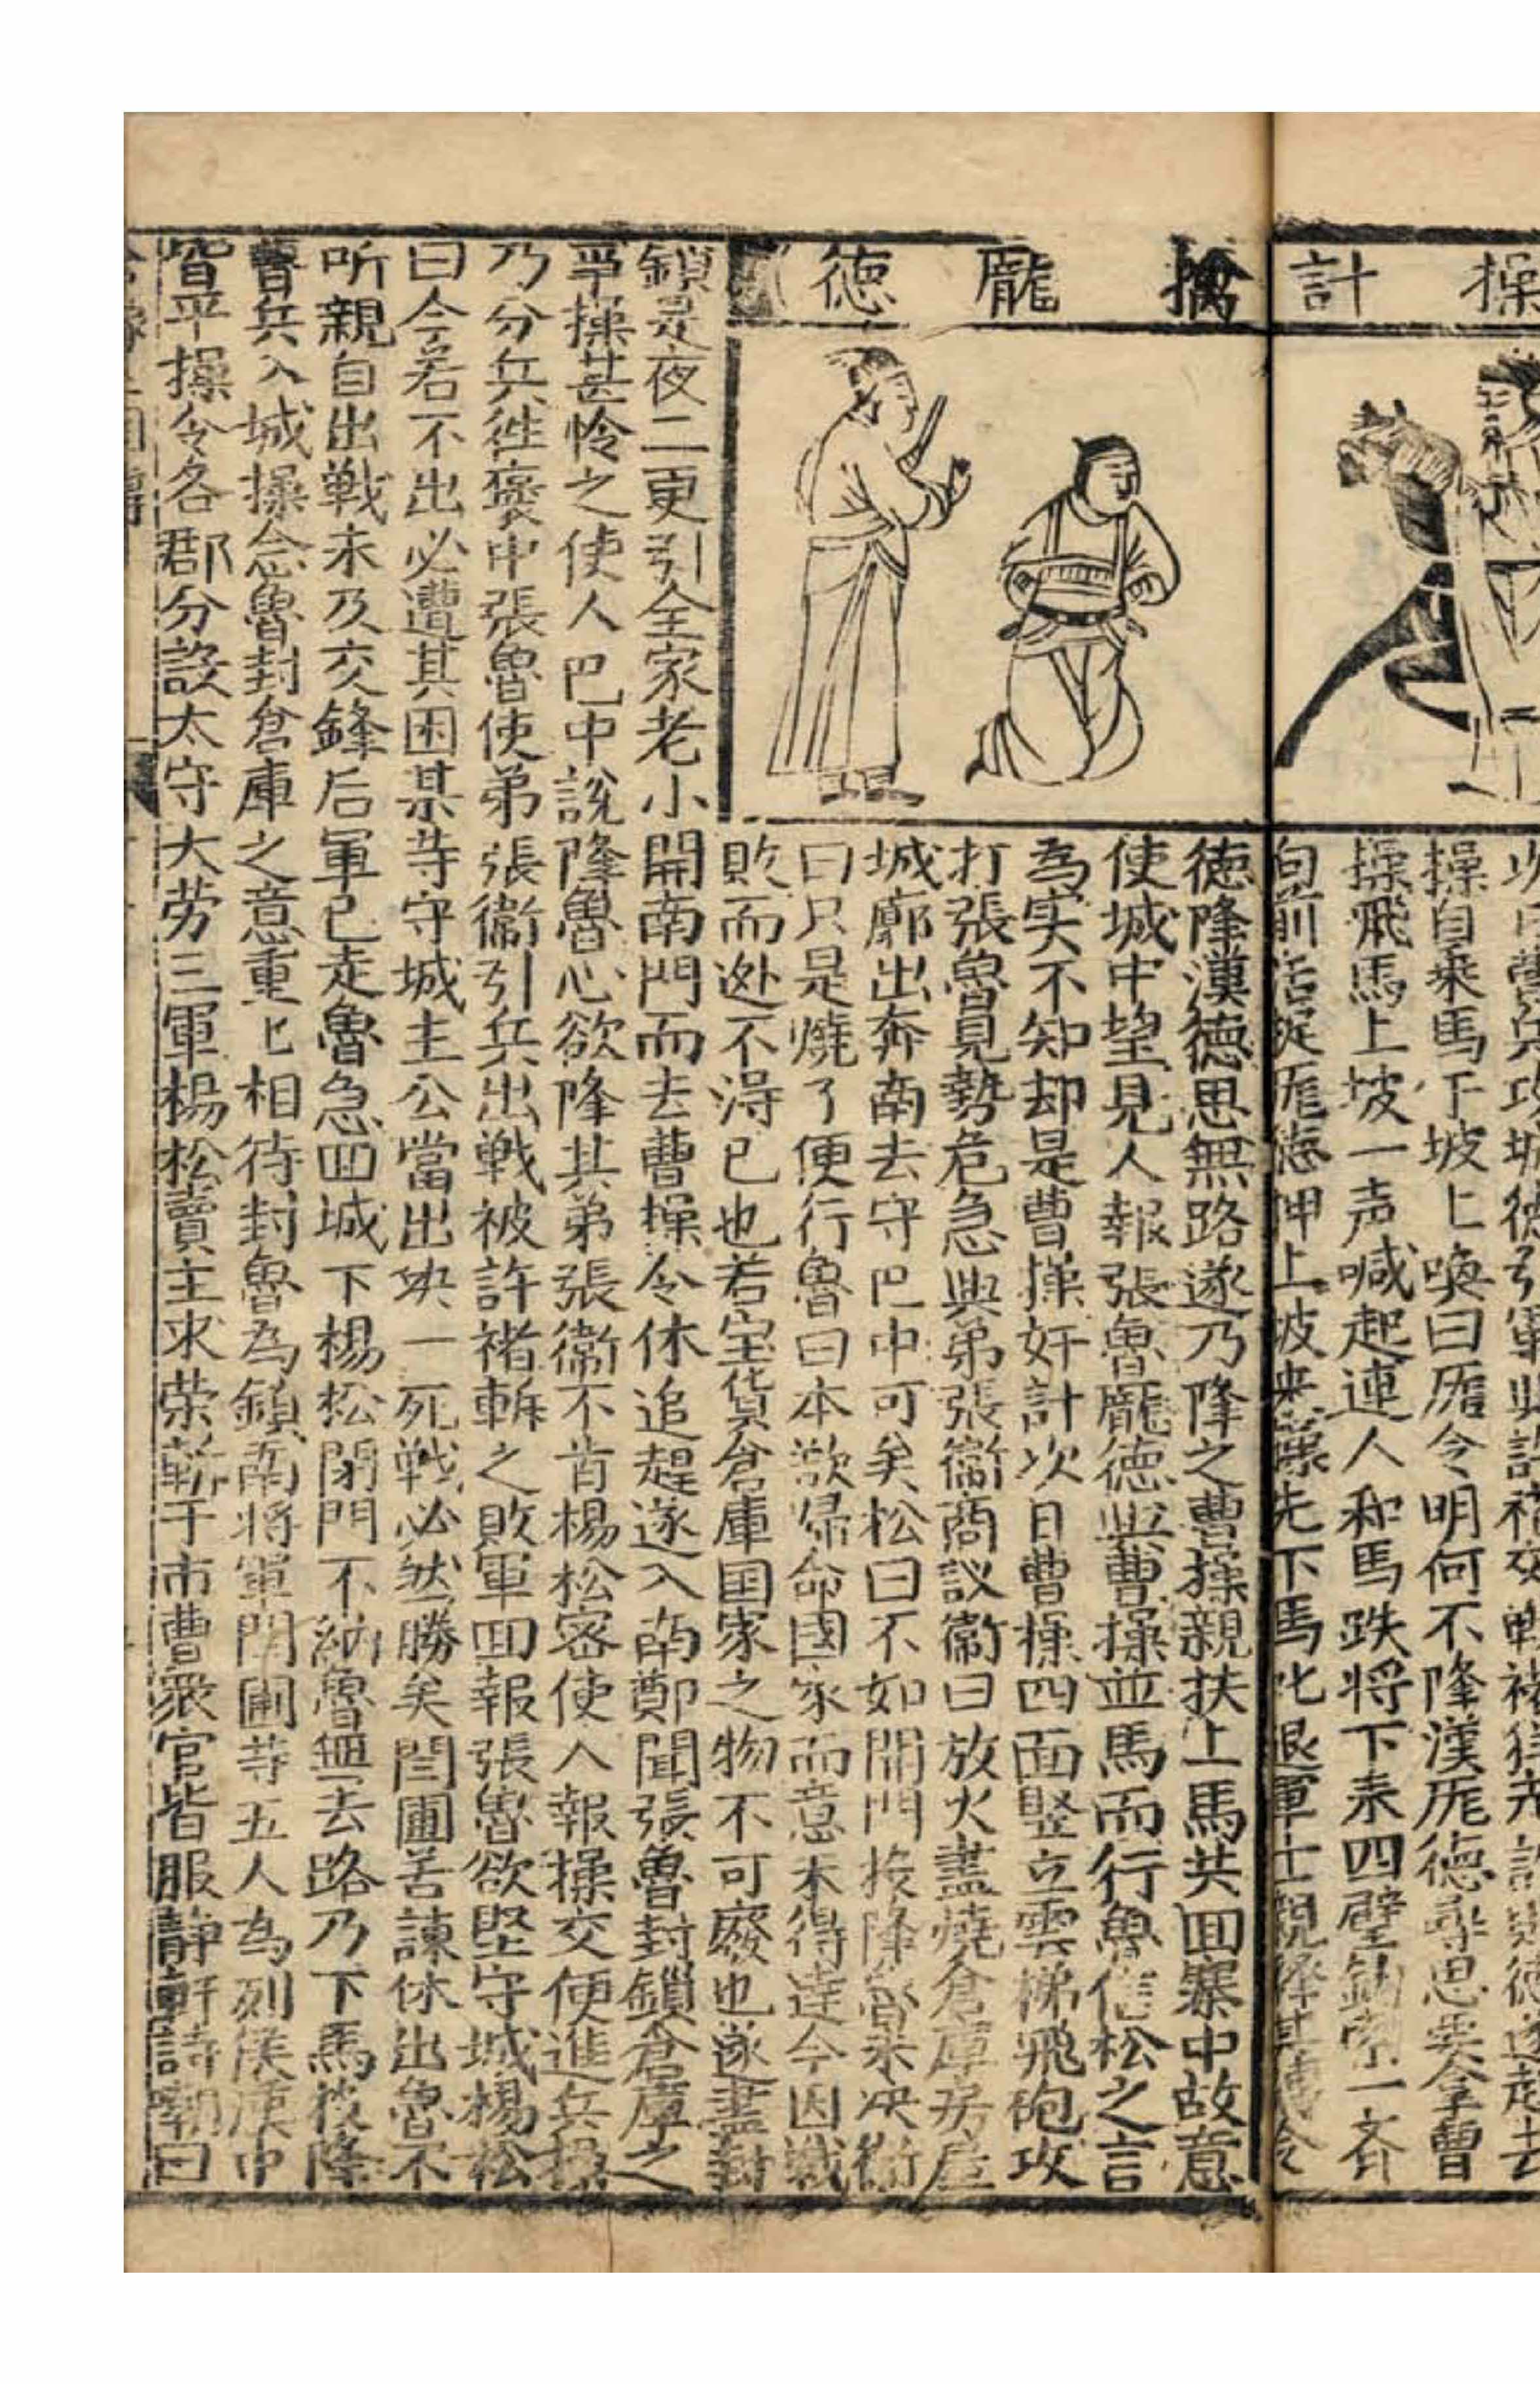 操計
擒龐德
操自乘馬于坡上喚曰龐令明何不降漢龐德尋思要拿曹
操飛馬上坡一声喊起連人和馬跌将下来四壁鈎索一斉
向前活捉龐德押上坡来操先下馬叱退軍士親釋其縛令
德降漢德思無路遂乃降之曹操親扶上馬共囬寨中故意
使城中望見人報張魯龐德與曹操並馬而行魯信松之言
為実不知却是曹操奸計次日曹操四面竪立雲梯飛砲攻
打張魯見勢危急與弟張衛商议衛曰放火盡燒倉庫房屋
城廓出奔南去守巴中可矣松曰不如開門投降曹未决衛
曰只是燒了便行魯曰本欲歸命國家而意未得達今因戰
敗而迯不淂已也若宝貨倉庫囯家之物不可廢也遂盡封
鎖是夜二更引全家老小開南門而去曹操令休追趕遂入南鄭聞張魯封鎖倉庫之
事操甚怜之使人巴中說降魯心欲降其弟張衛不肯楊松密使人報操交便進兵操
乃分兵徃褒中張魯使弟張衛引兵出戰被許褚斬之敗軍囬報張魯欲堅守城楊松
曰今若不出必遭其困某䒭守城主公當出决一死戦必然勝矣閆圃苦諫休出魯不
听親自出戦未及交鋒后軍已走魯急囬城下楊松閉門不納魯無去路乃下馬投降
曹兵入城操念魯封倉庫之意重匕相待封魯為鎮南将軍閆圃䒭五人為列侯漢中
皆平操令各郡分設太守大劳三軍楊松賣主求荣斬于市曹眾官皆服靜軒詩嘲曰